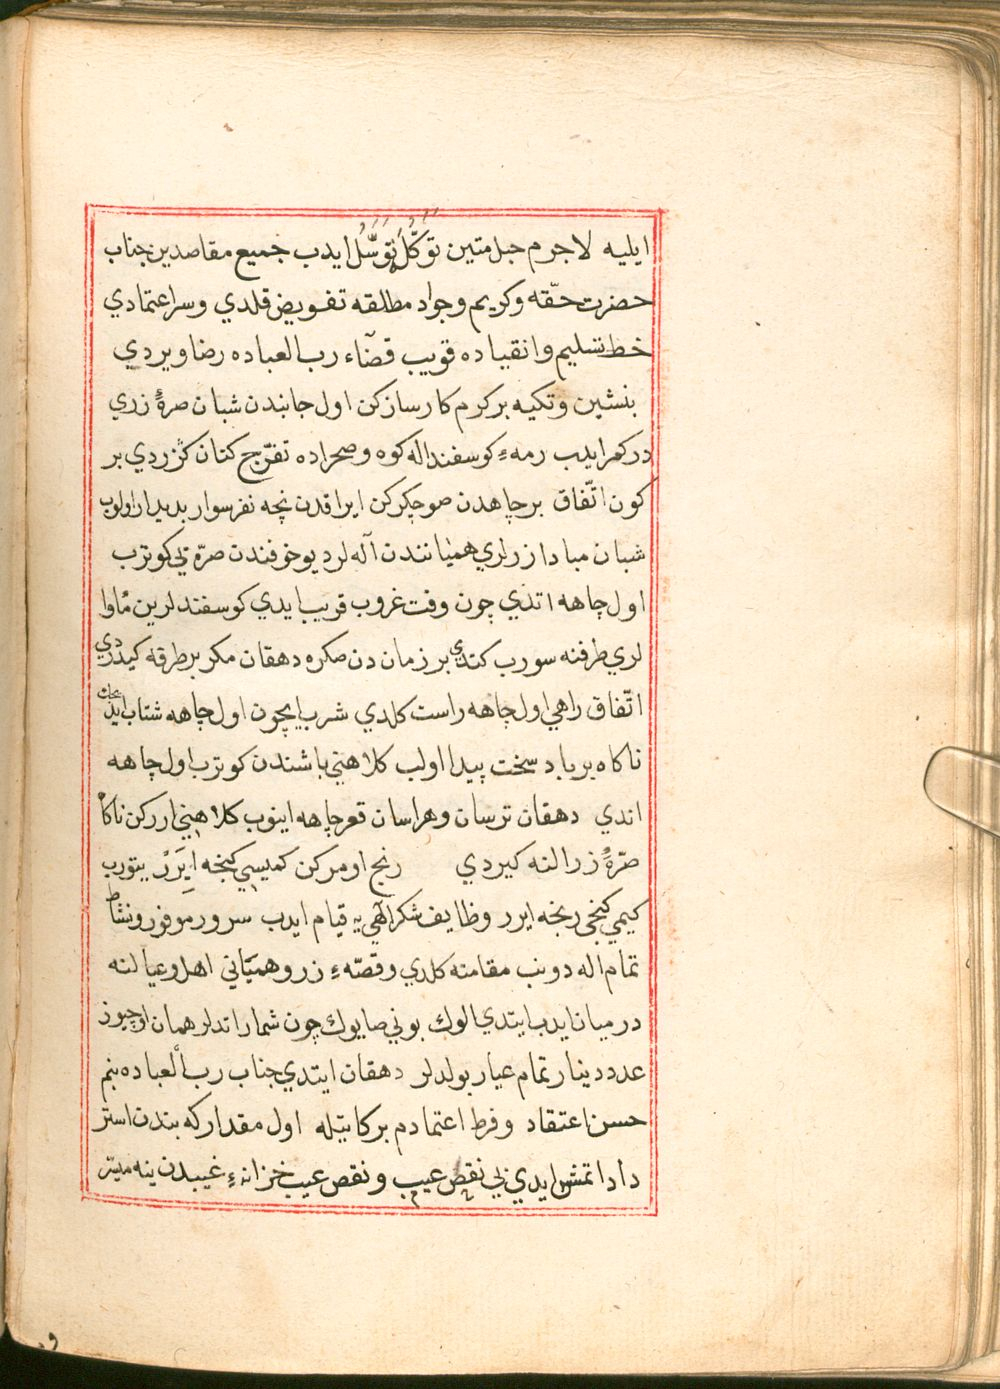 ايليه لاجرم حبل متين توكّل تَوَسُّل ايدب جميع مقاصدين جناب
حضرت حقّه وكريم وجواد مطلقه تفويض قلدي وسراعتمادي
خط تسليم وانقياده قويب قضآء رب العباده رضا ويردي
بنشين وتكيه بركرم كارسازكن اول جانبدن شبان صرهٔ زري
دركمر ايدب رمهء كوسفند اله كوه وصحراده تفرّج كنان كزردي بر
كون اتّفاق برچاهدن صو چكركن ايراقدن نچه نفر سوار بديدار اولوب
شبان مبادا زرلري هميانندن آله لر ديو خوفندن صرّه يي كوترب
اول چاهه اتدي چون وقت غروب قريب ايدي كوسفندلرين مأوا
لري طرفنه سورب كتدي بر زمان دن صكره دهقان مكر بر طرقه كيدردي
اتّفاق راهي اول چاهه راست كلدي شرب ايچون اول چاهه شتاب ايد
ناكاه بر باد سخت پيدا اولب كلاهني باشندن كوترب اول چاهه
اندي دهقان ترسان وهراسان قعر چاهه اينوب كلاهني اراركن ناكاه
صرّهٔ زر النه كيردي رنج اومركن كميسي كنجه ايرَر يتورب
كيمي كنجي رنجه ايرر وظايف شكر الهي يه قيام ايدب سرور موفور ونشاط
تمام اله دونب مقامنه كلدي وقصّهء زر وهميَاني اهل وعيالنه
درميان ايدب ايتدي الوك بوني صايوك چون شمار اتدلر همان اوچيوز
عدد دينار تمام عيار بولدلر دهقان ايتدي جناب رب ألعباده بنم
حسن اعتقاد وفرط اعتمادم بركاتيله اول مقدار كه بندن استر
داد اتمش ايدي بي نقص عيب ونقص عيب خزانهء غيبدن ينه ميسّر
و